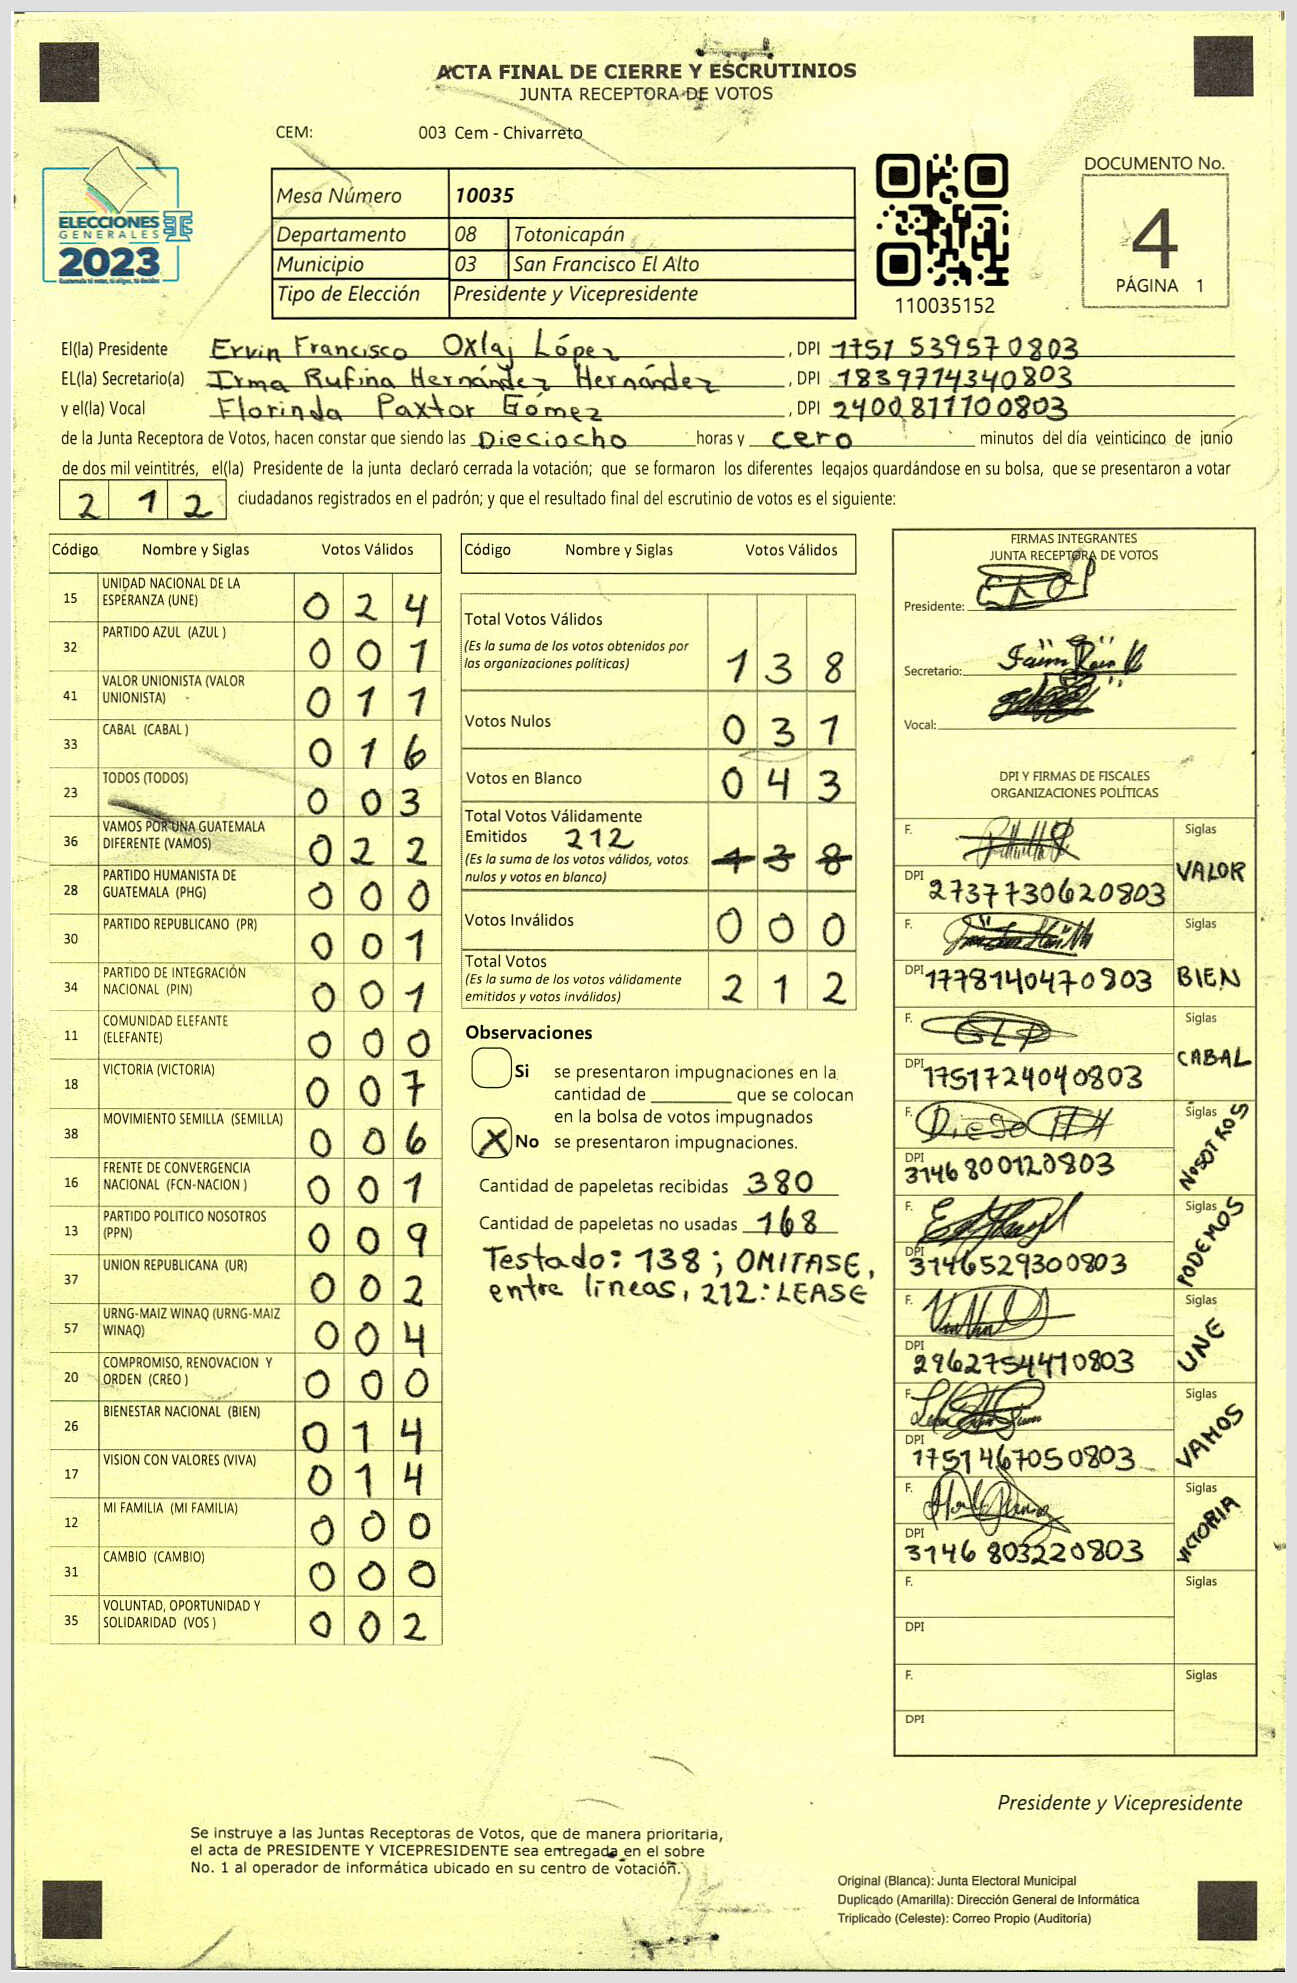 ACTA FINAL DE CIERRE Y ESCRUTINIOS
JUNTA RECEPTORA DE VOTOS
CEM: 003 Cem - Chivarreto
ELECCIONES
GENERALES
2023
Guatemala tú votas, tú eliges, tú decides
Mesa Número 10035
Departamento 08 Totonicapán
Municipio 03 San Francisco El Alto
Tipo de Elección Presidente y Vicepresidente
110035152
DOCUMENTO No.
4
PÁGINA 1
El(la) Presidente Ervin Francisco Oxlaj López, DPI 1751 539570803
EL(la) Secretario(a) Irma Rufina Hernández Hernández, DPI 1839714340803
y el(la) Vocal Florinda Paxtor Gómez, DPI 2400811700803
de la Junta Receptora de Votos, hacen constar que siendo las Dieciocho horas y cero minutos del día veinticinco de junio
de dos mil veintitrés, el(la) Presidente de la junta declaró cerrada la votación; que se formaron los diferentes legajos quardándose en su bolsa, que se presentaron a votar
212 ciudadanos registrados en el padrón; y que el resultado final del escrutinio de votos es el siguiente:
Código Nombre y Siglas Votos Válidos
15 UNIDAD NACIONAL DE LA ESPERANZA (UNE) 024
32 PARTIDO AZUL (AZUL ) 001
41 VALOR UNIONISTA (VALOR UNIONISTA) 011
33 CABAL (CABAL ) 016
23 TODOS (TODOS) 003
36 VAMOS POR UNA GUATEMALA DIFERENTE (VAMOS) 022
28 PARTIDO HUMANISTA DE GUATEMALA (PHG) 000
30 PARTIDO REPUBLICANO (PR) 001
34 PARTIDO DE INTEGRACIÓN NACIONAL (PIN) 001
11 COMUNIDAD ELEFANTE (ELEFANTE) 000
18 VICTORIA (VICTORIA) 007
38 MOVIMIENTO SEMILLA (SEMILLA) 006
16 FRENTE DE CONVERGENCIA NACIONAL (FCN-NACION ) 001
13 PARTIDO POLITICO NOSOTROS (PPN) 009
37 UNION REPUBLICANA (UR) 002
57 URNG-MAIZ WINAQ (URNG-MAIZ WINAQ) 004
20 COMPROMISO, RENOVACION Y ORDEN (CREO ) 000
26 BIENESTAR NACIONAL (BIEN) 014
17 VISION CON VALORES (VIVA) 014
12 MI FAMILIA (MI FAMILIA) 000
31 CAMBIO (CAMBIO) 000
35 VOLUNTAD, OPORTUNIDAD Y SOLIDARIDAD (VOS ) 002
Código Nombre y Siglas Votos Válidos
Total Votos Válidos
(Es la suma de los votos obtenidos por
las organizaciones políticas) 138
Votos Nulos 031
Votos en Blanco 043
Total Votos Válidamente
Emitidos 212
(Es la suma de los votos válidos, votos
nulos y votos en blanco) 138
Votos Inválidos 000
Total Votos
(Es la suma de los votos válidamente
emitidos y votos inválidos) 212
Observaciones
Si se presentaron impugnaciones en la
cantidad de ________ que se colocan
en la bolsa de votos impugnados
X No se presentaron impugnaciones.
Cantidad de papeletas recibidas 380
Cantidad de papeletas no usadas 168
Testado: 138 ; OMITASE,
entre líneas, 212: LEASE
FIRMAS INTEGRANTES
JUNTA RECEPTORA DE VOTOS
Presidente:
Secretario:
Vocal:
DPI Y FIRMAS DE FISCALES
ORGANIZACIONES POLÍTICAS
F. Siglas VALOR
DPI 2737730620803
F. Siglas BIEN
DPI 1778140470803
F. Siglas CABAL
DPI 1751724040803
F. Diego Siglas NOSOTROS
DPI 3146800120803
F. Siglas PODEMOS
DPI 3146529300803
F. Siglas UNE
DPI 2962754410803
F. Siglas VAMOS
DPI 1751467050803
F. Siglas VICTORIA
DPI 3146 803220803
F. Siglas
DPI
F. Siglas
DPI
Presidente y Vicepresidente
Se instruye a las Juntas Receptoras de Votos, que de manera prioritaria,
el acta de PRESIDENTE Y VICEPRESIDENTE sea entregada en el sobre
No. 1 al operador de informática ubicado en su centro de votación.
Original (Blanca): Junta Electoral Municipal
Duplicado (Amarilla): Dirección General de Informática
Triplicado (Celeste): Correo Propio (Auditoría)